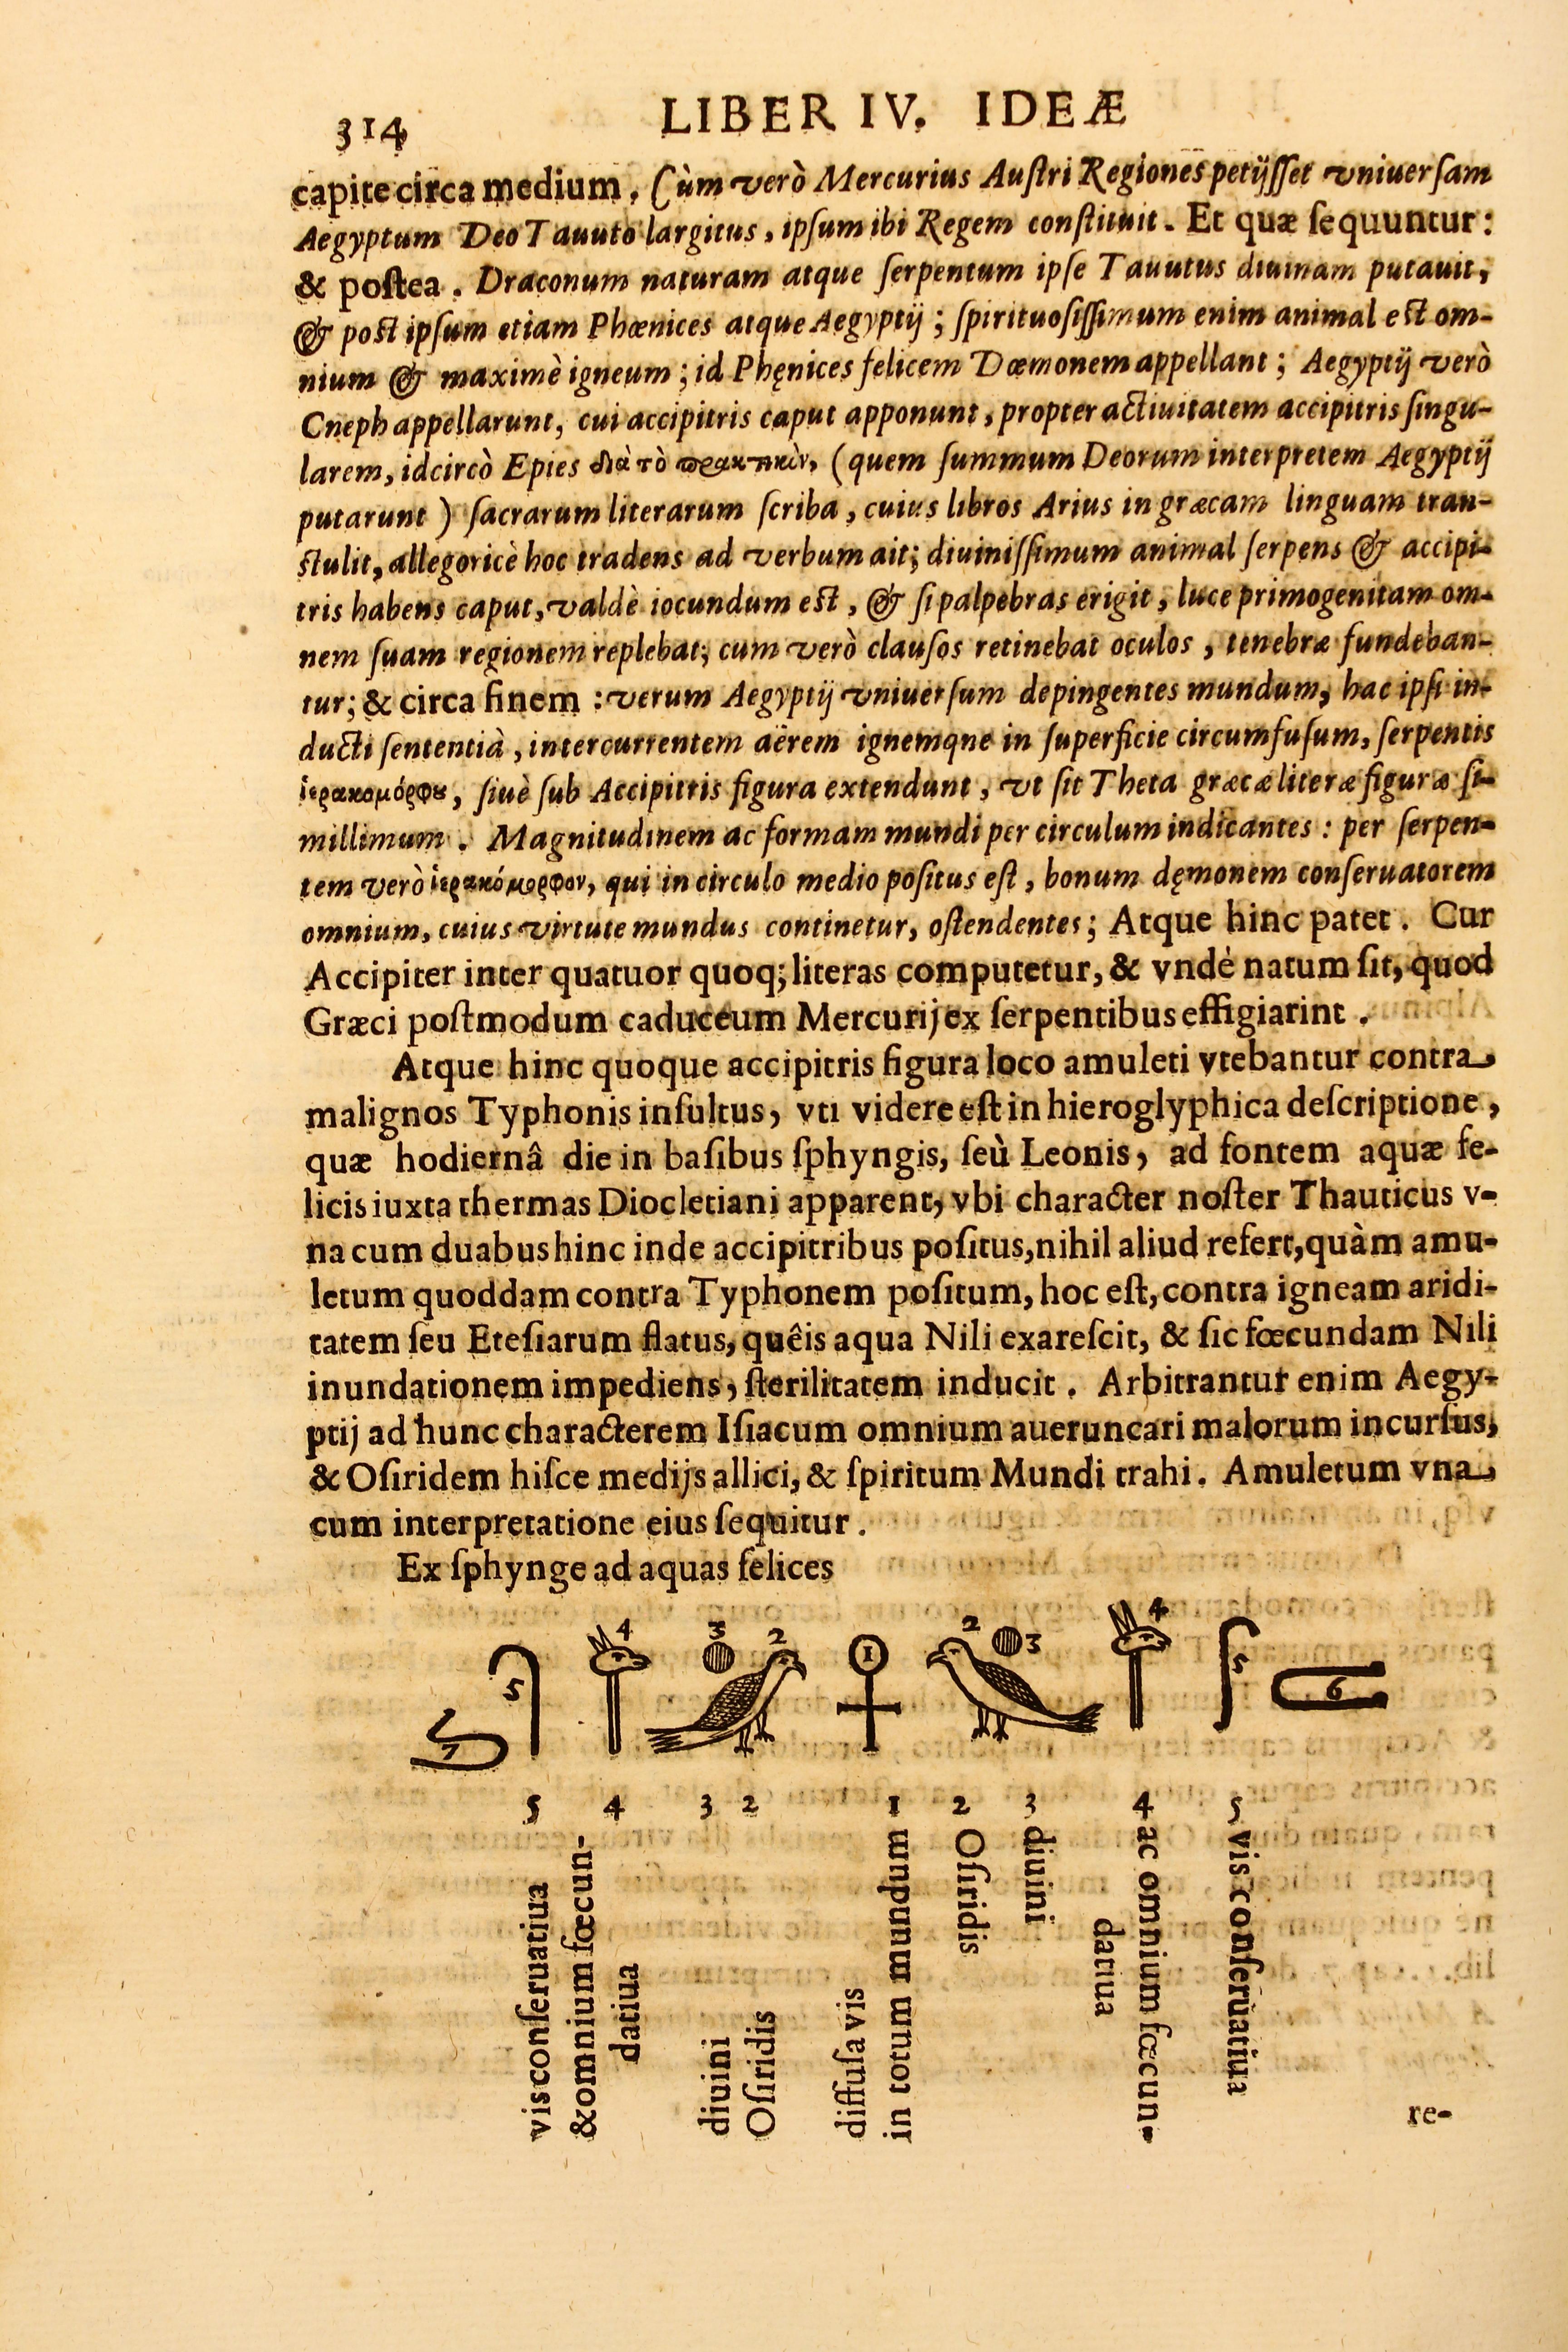 314
LIBER IV. IDEÆ
capite circa medium. Cùm verò Mercurius Auſtri Regiones petijſſet vniuerſam
Aegyptum Deo Tauuto largitus, ipſum ibi Regem conſtituit. Et quæ ſequuntur:
& poſtea. Draconum naturam atque ſerpentum ipſe Tauutus diuinam putauit,
& poſt ipſum etiam Phœnices atque Aegyptij; ſpirituoſiſſimum enim animal eſt om-
nium & maximè igneum; id Phęnices felicem Dæmonem appellant; Aegyptij verò
Cneph appellarunt, cui accipitris caput apponunt, propter actiuitatem accipitris ſingu-
larem, idcircò Epies διὰ τὸ πρακτικὼν, (quem ſummum Deorum interpretem Aegyptij
putarunt) ſacrarum literarum ſcriba, cuius libros Arius in græcam linguam tran-
ſtulit, allegoricè hoc tradens ad verbum ait; diuiniſſimum animal ſerpens & accipi-
tris habens caput, valdè iocundum eſt, & ſi palpebras erigit, luce primogenitam om-
nem ſuam regionem replebat; cum verò clauſos retinebat oculos, tenebræ fundeban-
tur; & circa finem: verum Aegyptij vniuerſum depingentes mundum, hac ipſi in-
ducti ſententiâ, intercurrentem aërem ignemqne in ſuperficie circumfuſum, ſerpentis
ἱερακομόρφου, ſiuè ſub Accipitris figura extendunt, vt ſit Theta græcæ literæ figuræ ſi-
millimum. Magnitudinem ac formam mundi per circulum indicantes: per ſerpen-
tem verò ἱερακόμορφον, qui in circulo medio poſitus eſt, bonum dęmonem conſeruatorem
omnium, cuius virtute mundus continetur, oſtendentes; Atque hinc patet. Cur
Accipiter inter quatuor quoq; literas computetur, & vndè natum ſit, quod
Græci poſtmodum caduceum Mercurij ex ſerpentibus effigiarint.
Atque hinc quoque accipitris figura loco amuleti vtebantur contra
malignos Typhonis inſultus, vti videre eſt in hieroglyphica deſcriptione,
quæ hodiernâ die in baſibus ſphyngis, ſeù Leonis, ad fontem aquæ fe-
licis iuxta thermas Diocletiani apparent, vbi character noſter Thauticus v-
na cum duabus hinc inde accipitribus poſitus, nihil aliud refert, quàm amu-
letum quoddam contra Typhonem poſitum, hoc eſt, contra igneam aridi-
tatem ſeu Eteſiarum flatus, quêis aqua Nili exareſcit, & ſic fœcundam Nili
inundationem impediens, ſterilitatem inducit. Arbitrantur enim Aegy-
ptij ad hunc characterem Iſiacum omnium aueruncari malorum incurſus,
& Oſiridem hiſce medijs allici, & ſpiritum Mundi trahi. Amuletum vna
cum interpretatione eius ſequitur.
Ex ſphynge ad aquas felices
7 5 4 3 2 1 2 3 4 5 6
5 4 3 2 1 2 3 4 5
vis conſeruatiua
& omnium fœcun-
datiua
diuini
Oſiridis
diffuſa vis
in totum mundum
Oſiridis
diuini
ac omnium fœcun-
datiua
vis conſeruatiua
re-